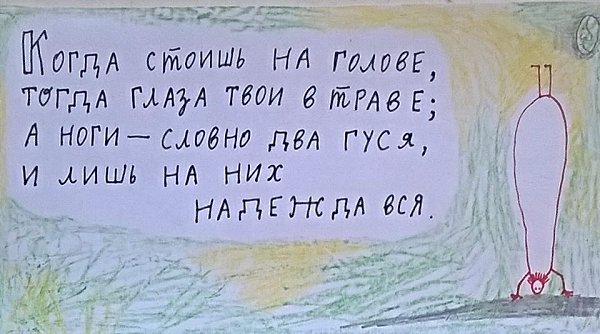 Когда стоишь на голове,
тогда глаза твои в траве;
а ноги — словно два гуся,
и лишь на них
надежда вся.